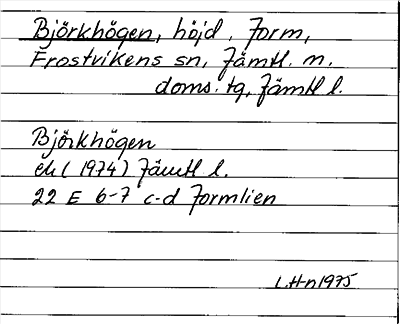 Björkhögen, höjd, Form,
Frostvikens sn, Jämtl. n.
doms. tg, Jämtl l.
Björkhögen
ek (1974) Jämtl l.
22 E 6-7 c-d Formlien
L.H-n 1975